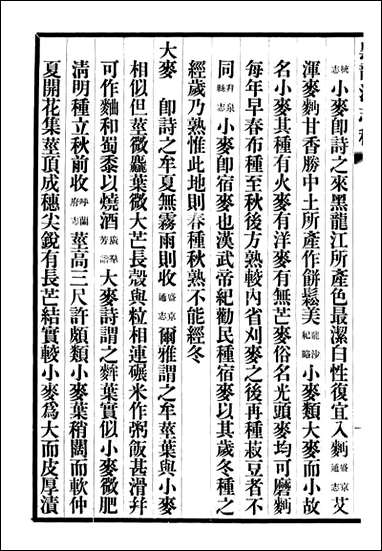 統志小麥卽詩之來黑龍江所產色最潔白性復宜入麪盛京通志艾
渾麥麪甘香勝中土所產作餅鬆美龍沙紀略小麥類大麥而小故
名小麥其種有火麥有洋麥有無芒麥俗名光頭麥均可磨麪
每年早春布種至秋後方熟較內省刈麥之後再種菽豆者不
同井泉縣志小麥卽宿麥也漢武帝紀勸民種宿麥以其歲冬種之
經歲乃熟惟此地則春種秋熟不能經冬
大麥　卽詩之牟夏無霧雨則收盛京通志爾雅謂之牟莖葉與小麥
相似但莖微麤葉微大芒長殼與粒相連碾米作粥飯甚滑幷
可作麯和蜀黍以燒酒廣羣芳譜大麥詩謂之麰葉實似小麥微肥
淸明種立秋前收呼蘭府志莖高三尺許頗類小麥葉稍闊而軟仲
夏開花集莖頂成穗尖銳有長芒結實較小麥爲大而皮厚漬